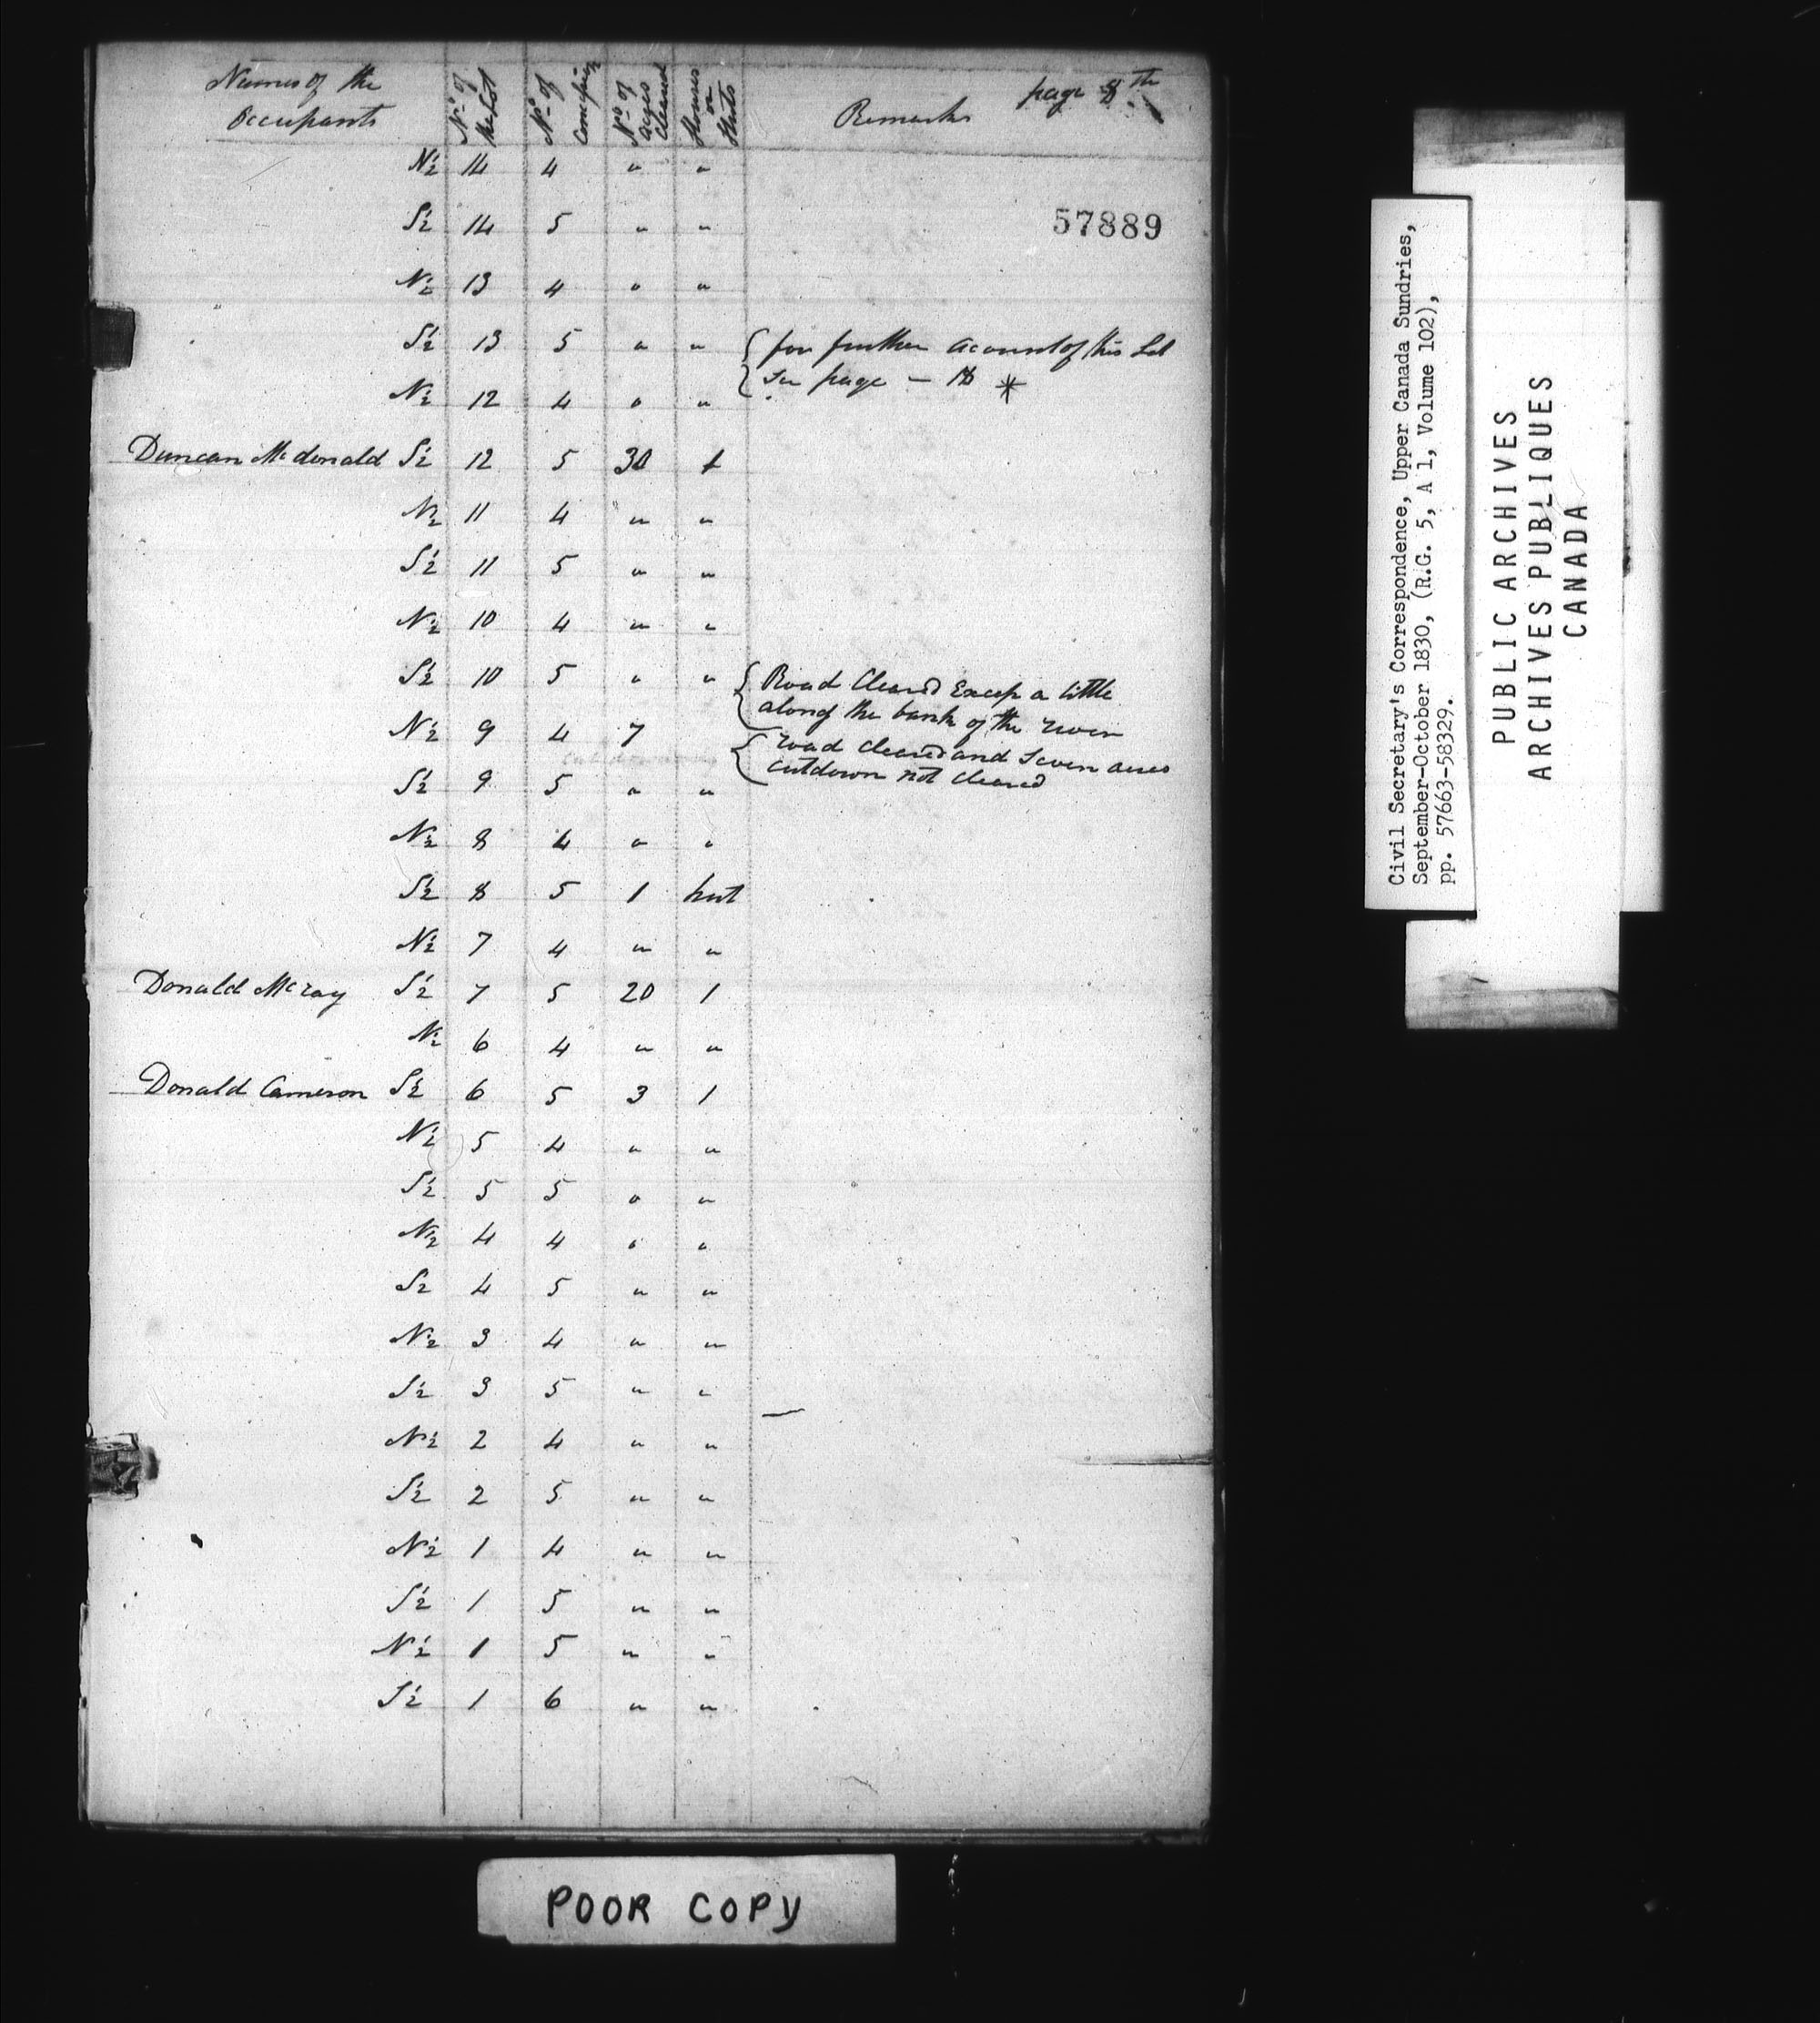 page 8th
Names of the Occupants | No. of the Lot | No. of Concession | No. of acres cleared | Houses or Huts | Remarks
N½ 14 4 " "
57889
S½ 14 5 " "
N½ 13 4 " "
S½ 13 5 " " { for further acount of this Lot
{ See page —
N½ 12 4 " "
Duncan Mcdonald S½ 12 5 30 1
N½ 11 4 " "
S½ 11 5 " "
N½ 10 4 " "
S½ 10 5 " " { Road Cleard Excep a little
along the bank of the river
N½ 9 4 7 { road cleared and Seven acres
cutdown not cleared
S½ 9 5 " "
N½ 8 4 " "
S½ 8 5 1 hut
N½ 7 4 " "
Donald Mcray S½ 7 5 20 1
N½ 6 4 " "
Donald Cameron S½ 6 5 3 1
N½ 5 4 " "
S½ 5 5 " "
N½ 4 4 " "
S½ 4 5 " "
N½ 3 4 " "
S½ 3 5 " "
N½ 2 4 " "
S½ 2 5 " "
N½ 1 4 " "
S½ 1 5 " "
N½ 1 5 " "
S½ 1 6 " "
POOR COPY
Civil Secretary's Correspondence, Upper Canada Sundries,
September-October 1830, (R.G. 5, A 1, Volume 102),
pp. 57663-58329.
PUBLIC ARCHIVES
ARCHIVES PUBLIQUES
CANADA